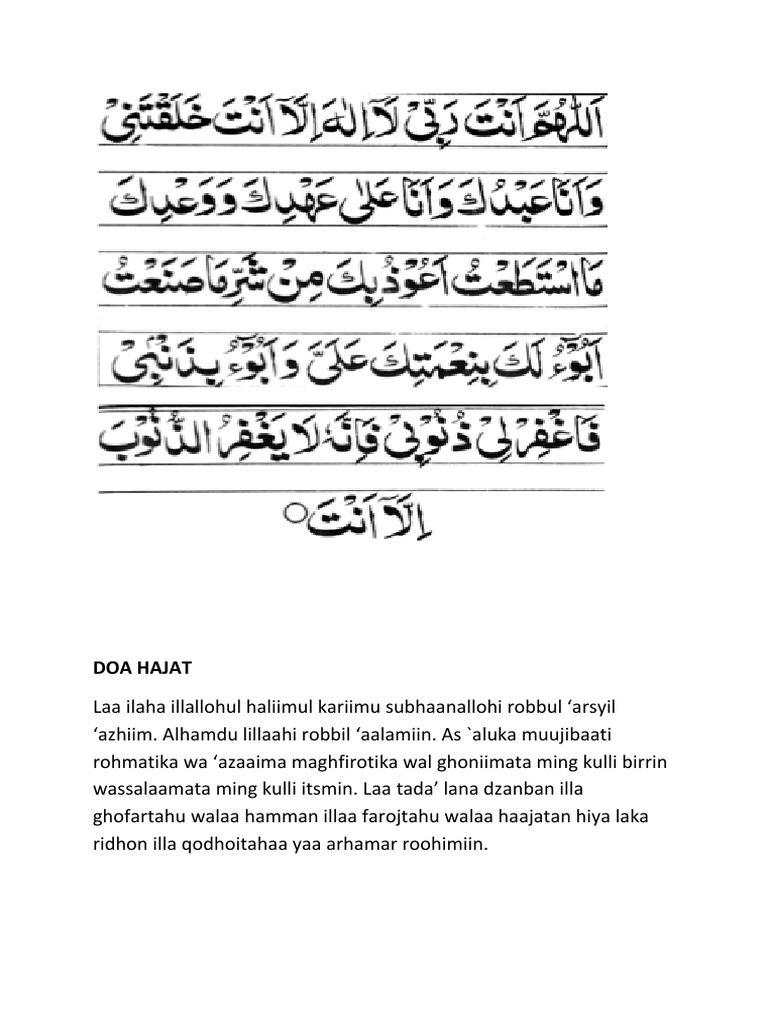 اَللّٰهُمَّ اَنْتَ رَبِّيْ لَآ اِلٰهَ اِلَّآ اَنْتَ خَلَقْتَنِيْ
وَاَنَا عَبْدُكَ وَاَنَا عَلٰى عَهْدِكَ وَوَعْدِكَ
مَا اسْتَطَعْتُ اَعُوْذُ بِكَ مِنْ شَرِّ مَا صَنَعْتُ
اَبُوْٓءُ لَكَ بِنِعْمَتِكَ عَلَيَّ وَاَبُوْٓءُ بِذَنْبِيْ
فَاغْفِرْلِيْ ذُنُوْبِيْ فَاِنَّهٗ لَا يَغْفِرُ الذُّنُوْبَ
اِلَّآ اَنْتَ
DOA HAJAT
Laa ilaha illallohul haliimul kariimu subhaanallohi robbul ‘arsyil
‘azhiim. Alhamdu lillaahi robbil ‘aalamiin. As `aluka muujibaati
rohmatika wa ‘azaaima maghfirotika wal ghoniimata ming kulli birrin
wassalaamata ming kulli itsmin. Laa tada’ lana dzanban illa
ghofartahu walaa hamman illaa farojtahu walaa haajatan hiya laka
ridhon illa qodhoitahaa yaa arhamar roohimiin.